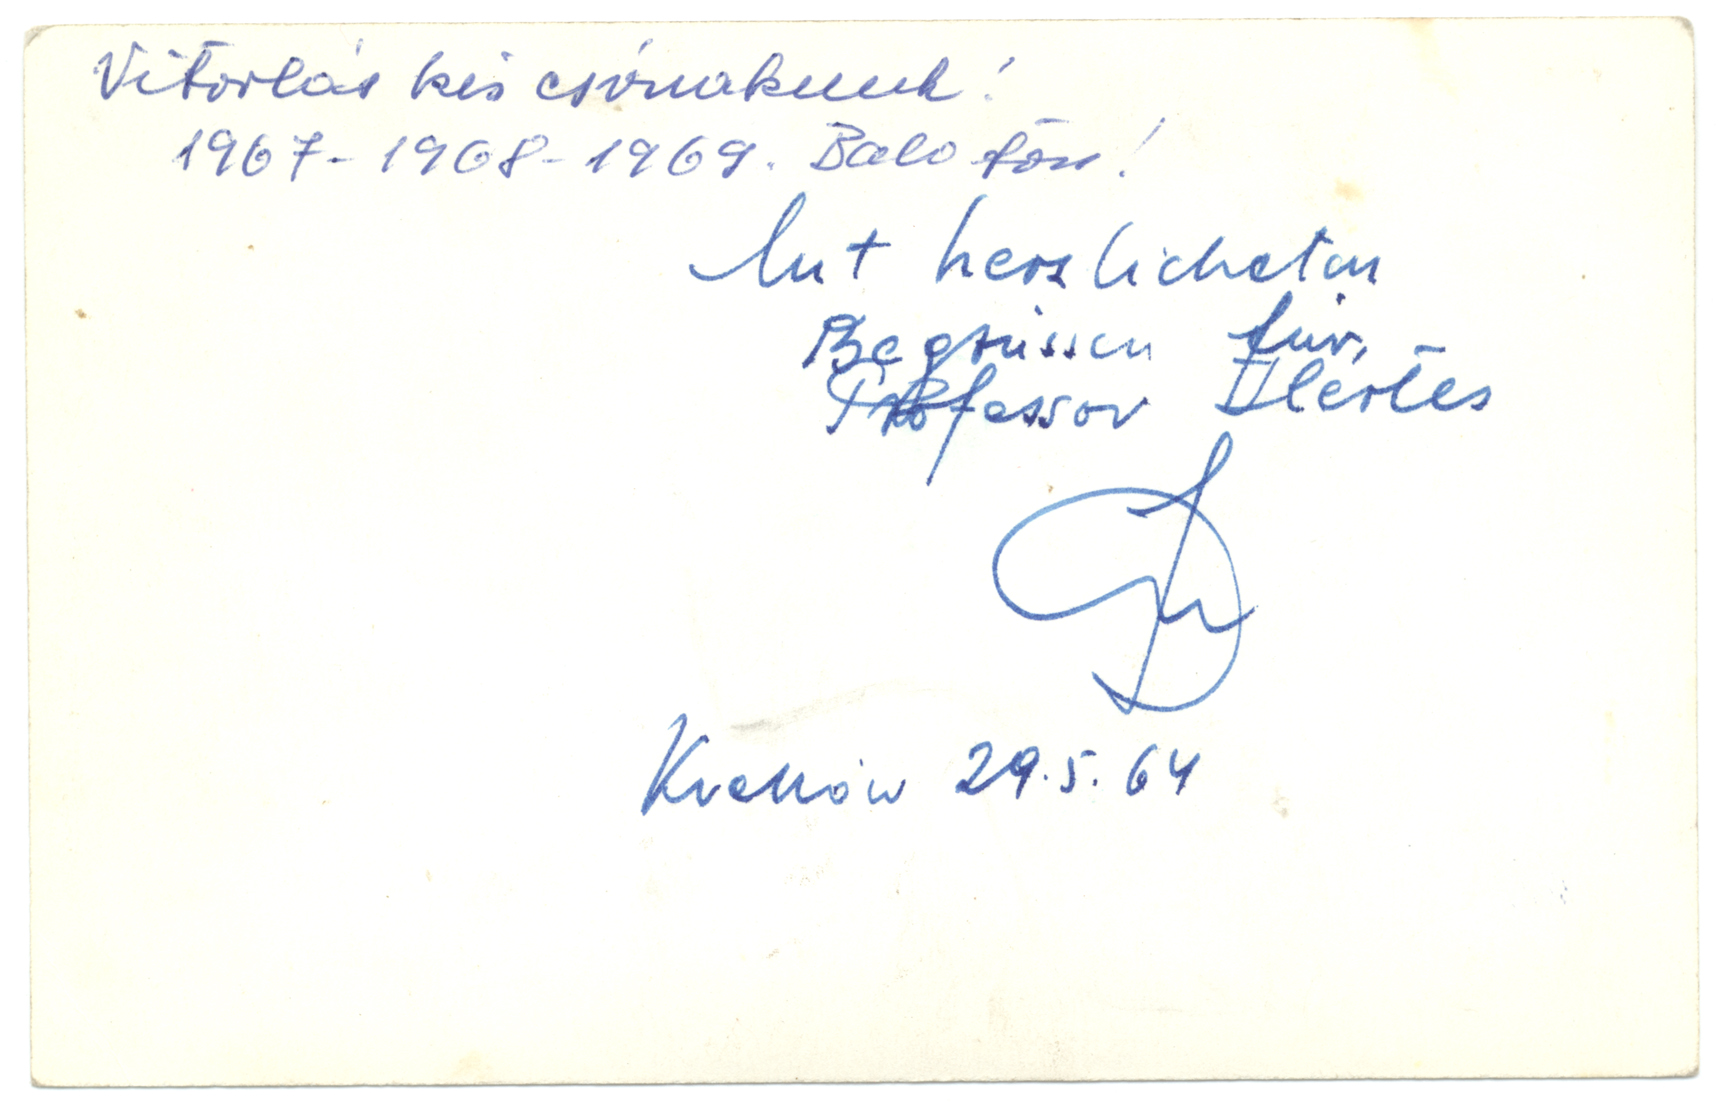 Vitorlás kis csónakunk!
1967-1968-1969. Balatón!
Mit herzlichsten
Begrüssen für,
Professor
Kraków 29.5.64